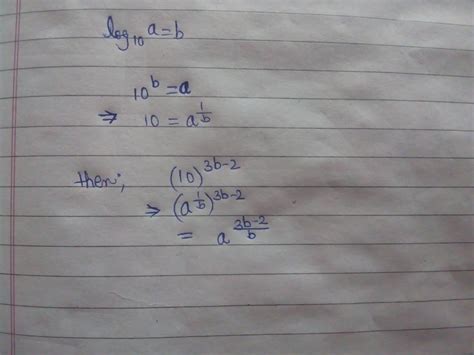 log₁₀ a = b
10^b = a
⇒ 10 = a^(1/b)
then; (10)^(3b-2)
⇒ (a^(1/b))^(3b-2)
= a^((3b-2)/b)